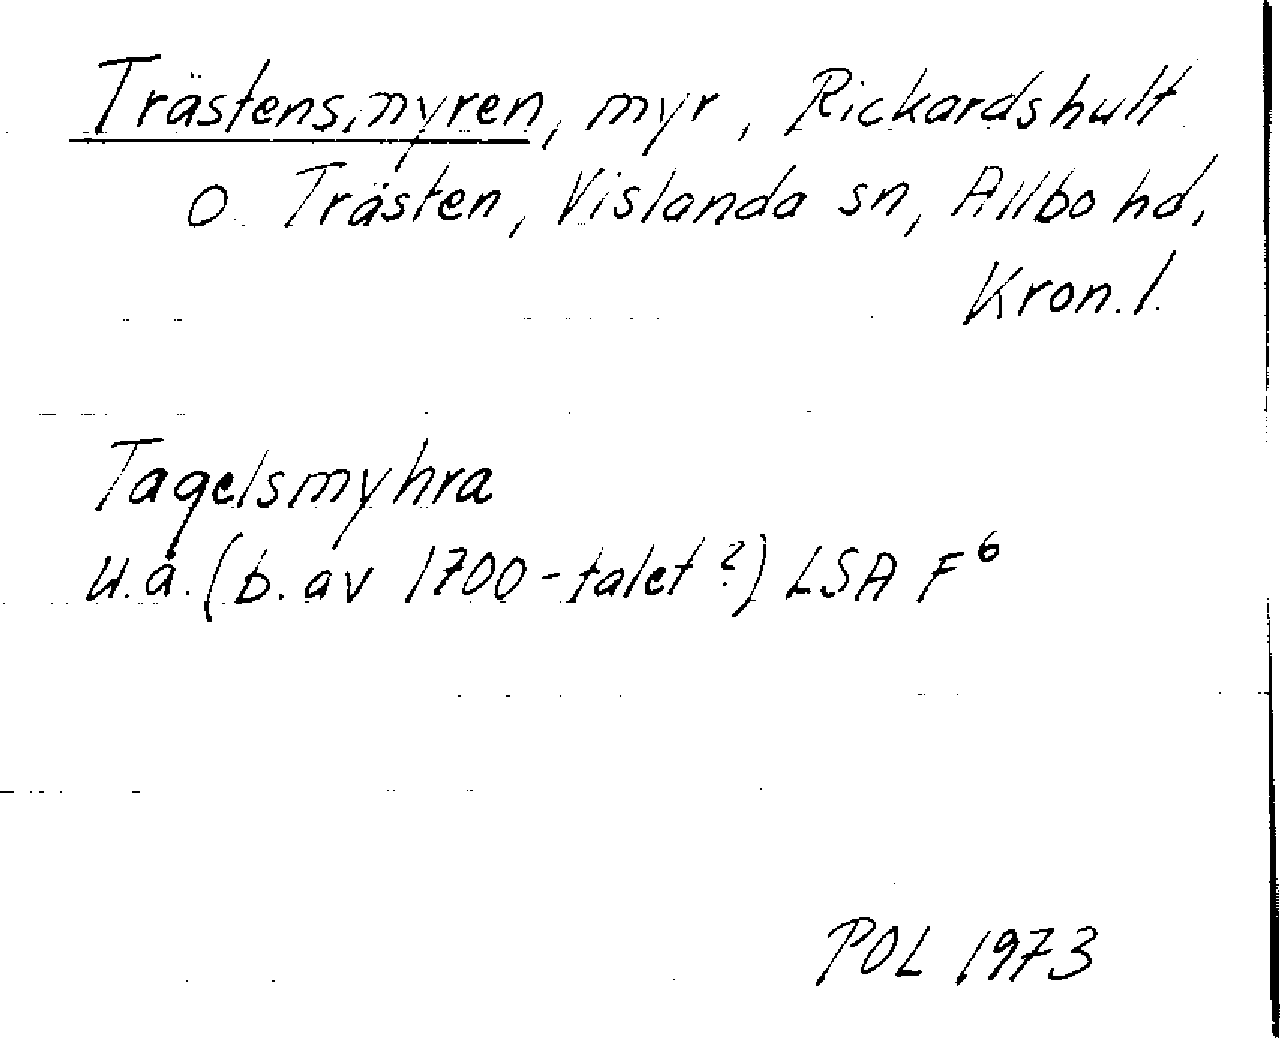 Trästensmyren, myr, Rickardshult
o. Trästen, Vislanda sn, Allbo hd,
Kron. l.
Tagelsmyhra
u.å. (b. av 1700-talet?) LSA F⁶
POL 1973